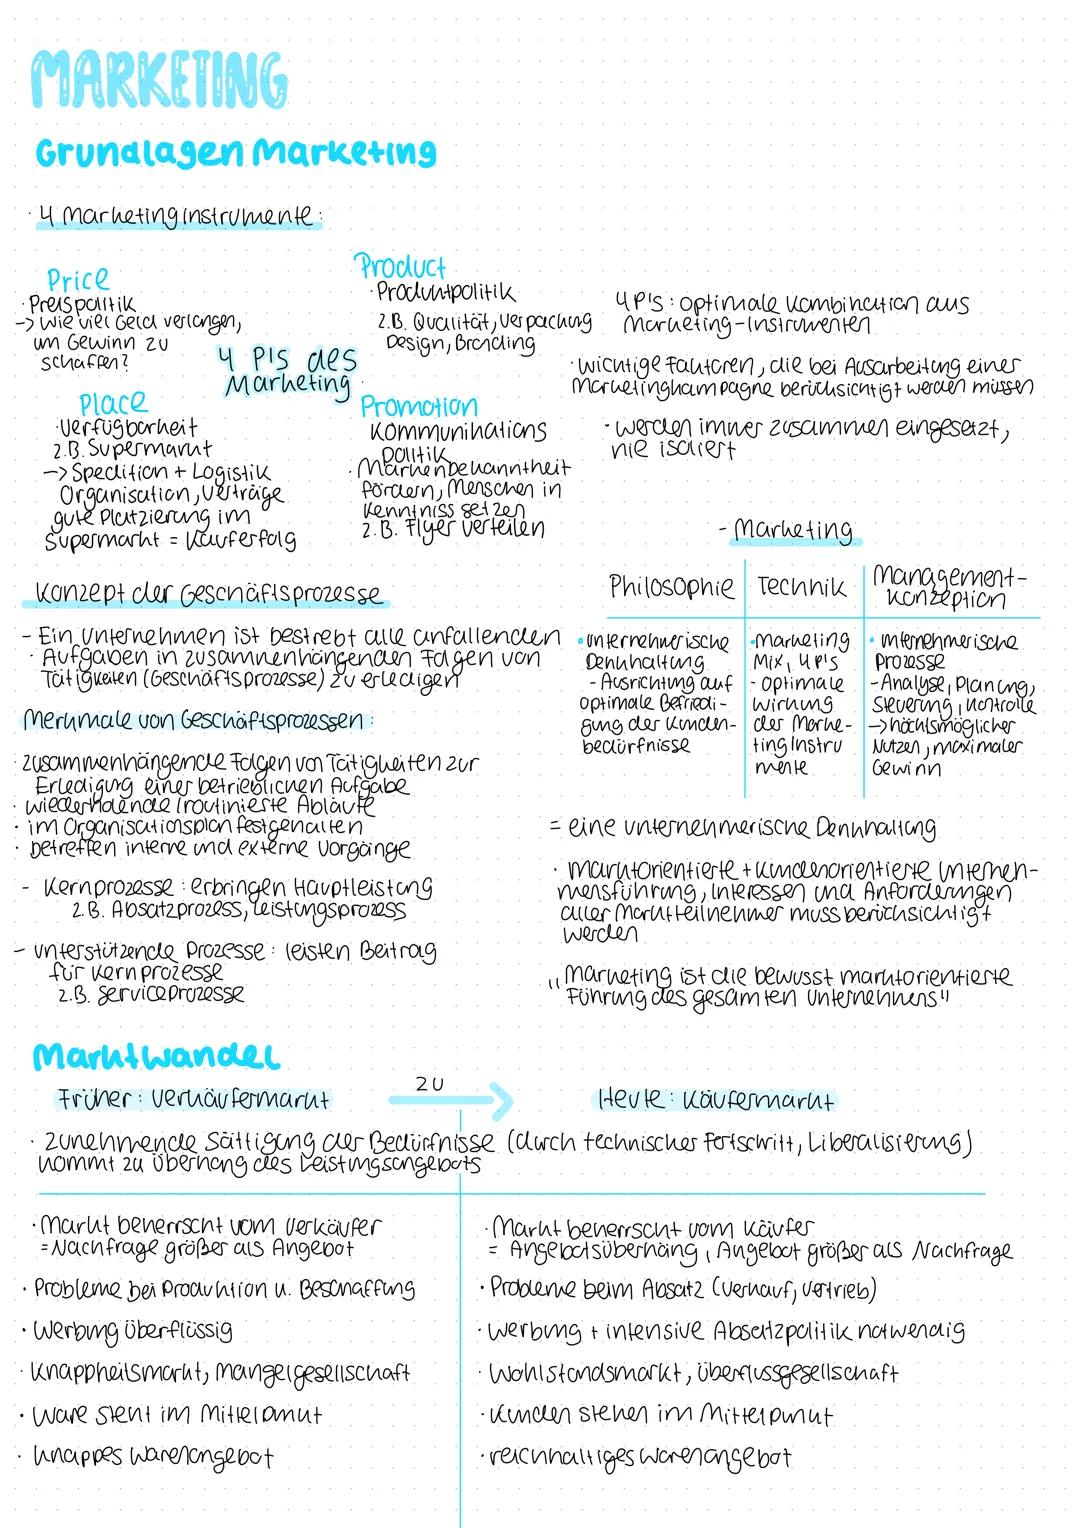 MARKETING
Grundlagen Marketing
· 4 Marketinginstrumente:
Price
· Preispolitik
-> Wie viel Geld verlangen,
um Gewinn zu
schaffen?
Product
· Produktpolitik
z.B. Qualität, Verpackung
Design, Branding
4 P's des
Marketing
Place
· Verfügbarkeit
z.B. Supermarkt
-> Spedition + Logistik
Organisation, Verträge
gute Platzierung im
Supermarkt = Kauferfolg
Promotion
Kommunikations
politik
· Markenbekanntheit
fördern, Menschen in
Kenntniss setzen
z.B. Flyer verteilen
4P's: optimale Kombination aus
Marketing-Instrumenten
· wichtige Faktoren, die bei Ausarbeitung einer
Marketingkampagne berücksichtigt werden müssen
· werden immer zusammen eingesetzt,
nie isoliert
Konzept der Geschäftsprozesse
- Ein Unternehmen ist bestrebt alle anfallenden
· Aufgaben in zusammenhängenden Folgen von
Tätigkeiten (Geschäftsprozesse) zu erledigen
Merkmale von Geschäftsprozessen:
· zusammenhängende Folgen von Tätigkeiten zur
Erledigung einer betrieblichen Aufgabe
· wiederholende/routinierte Abläufe
· im Organisationsplan festgehalten
· betreffen interne und externe Vorgänge
- Kernprozesse: erbringen Hauptleistung
z.B. Absatzprozess, Leistungsprozess
- unterstützende Prozesse: leisten Beitrag
für Kernprozesse
z.B. Serviceprozesse
- Marketing
Philosophie
Technik
Management-
konzeption
• unternehmerische
Denkhaltung
- Ausrichtung auf
optimale Befriedi-
gung der Kunden-
bedürfnisse
• marketing
Mix, 4P's
- optimale
wirkung
der Marke-
ting Instru
mente
• unternehmerische
Prozesse
- Analyse, Planung,
Steuerung, Kontrolle
-> höchstmöglicher
Nutzen, maximaler
Gewinn
= eine unternehmerische Denkhaltung
· marktorientierte + kundenorientierte Unterneh-
mensführung, Interessen und Anforderungen
aller Marktteilnehmer muss berücksichtigt
werden
„Marketing ist die bewusst marktorientierte
Führung des gesamten Unternehmens"
Marktwandel
Früher: Verkäufermarkt
zu
Heute: Käufermarkt
· zunehmende Sättigung der Bedürfnisse (durch technischer Fortschritt, Liberalisierung)
kommt zu Überhang des Leistungsangebots
· Markt beherrscht vom Verkäufer
= Nachfrage größer als Angebot
· Probleme bei Produktion u. Beschaffung
· Werbung überflüssig
· Knappheitsmarkt, Mangelgesellschaft
· Ware steht im Mittelpunkt
· knappes Warenangebot
· Markt beherrscht vom Käufer
= Angebotsüberhang, Angebot größer als Nachfrage
· Probleme beim Absatz (Verkauf, Vertrieb)
· Werbung + intensive Absatzpolitik notwendig
· Wohlstandsmarkt, überflussgesellschaft
· Kunden stehen im Mittelpunkt
· reichhaltiges Warenangebot